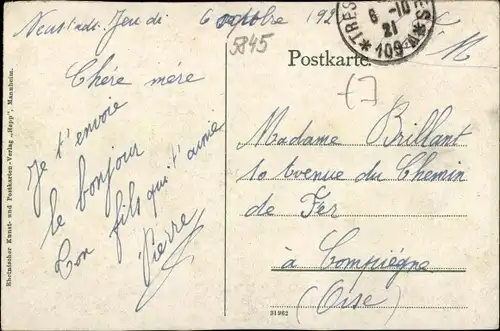 Neustadt. Jeudi 6 octobre 192
5845
TRES
6 -10
21
* 109 *
Postkarte.
Chère mère
Je t'envoie
le bonjour
Ton fils qui t'aime
Pierre
Madame Brillant
10 Avenue du Chemin
de Fer
à Compiègne
(Oise)
31982
Rheinischer Kunst- und Postkarten-Verlag „Hepp", Mannheim.